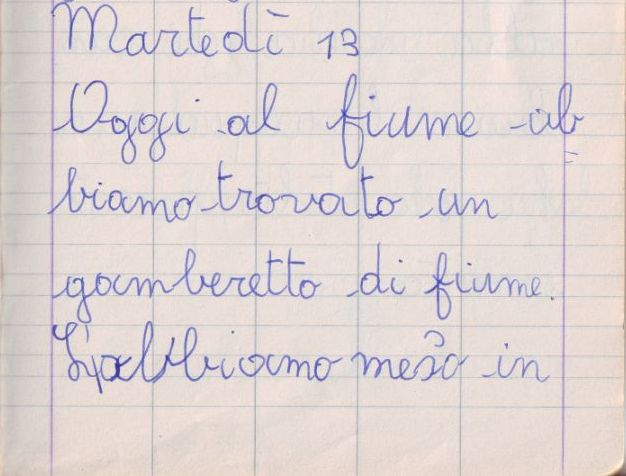 Martedì 13
Oggi al fiume ab=
biamo trovato un
gamberetto di fiume.
L'abbiamo messo in